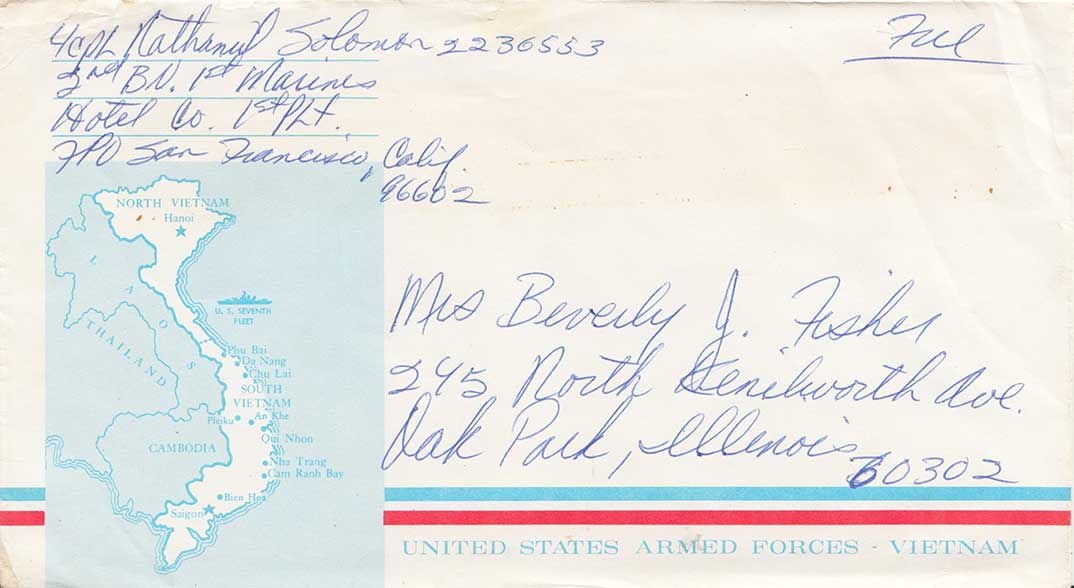 L/cpl Nathanyil Solomon 2236553
2nd BN. 1st Marines
Hotel Co. 1st PLt.
FPO San Francisco, Calif.
96602
Free
NORTH VIETNAM
Hanoi
LAOS
THAILAND
U. S. SEVENTH
FLEET
Phu Bai
Da Nang
Chu Lai
SOUTH
VIETNAM
Pleiku
An Khe
Qui Nhon
CAMBODIA
Nha Trang
Cam Ranh Bay
Bien Hoa
Saigon
Mrs Beverly J. Fisher
245 North Kenilworth Ave.
Oak Park, Illinois
60302
UNITED STATES ARMED FORCES - VIETNAM